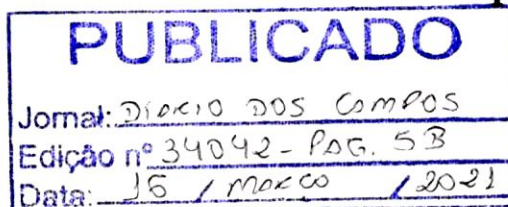 PUBLICADO
Jornal: DIÁRIO DOS CAMPOS
Edição nº 34042 - PAG. 5B
Data: 16 / MARCO / 2021